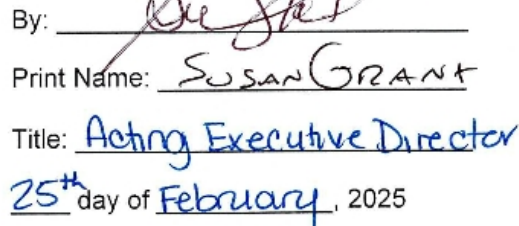 By:
Print Name: SUSAN GRANT
Title: Acting Executive Director
25th day of February, 2025